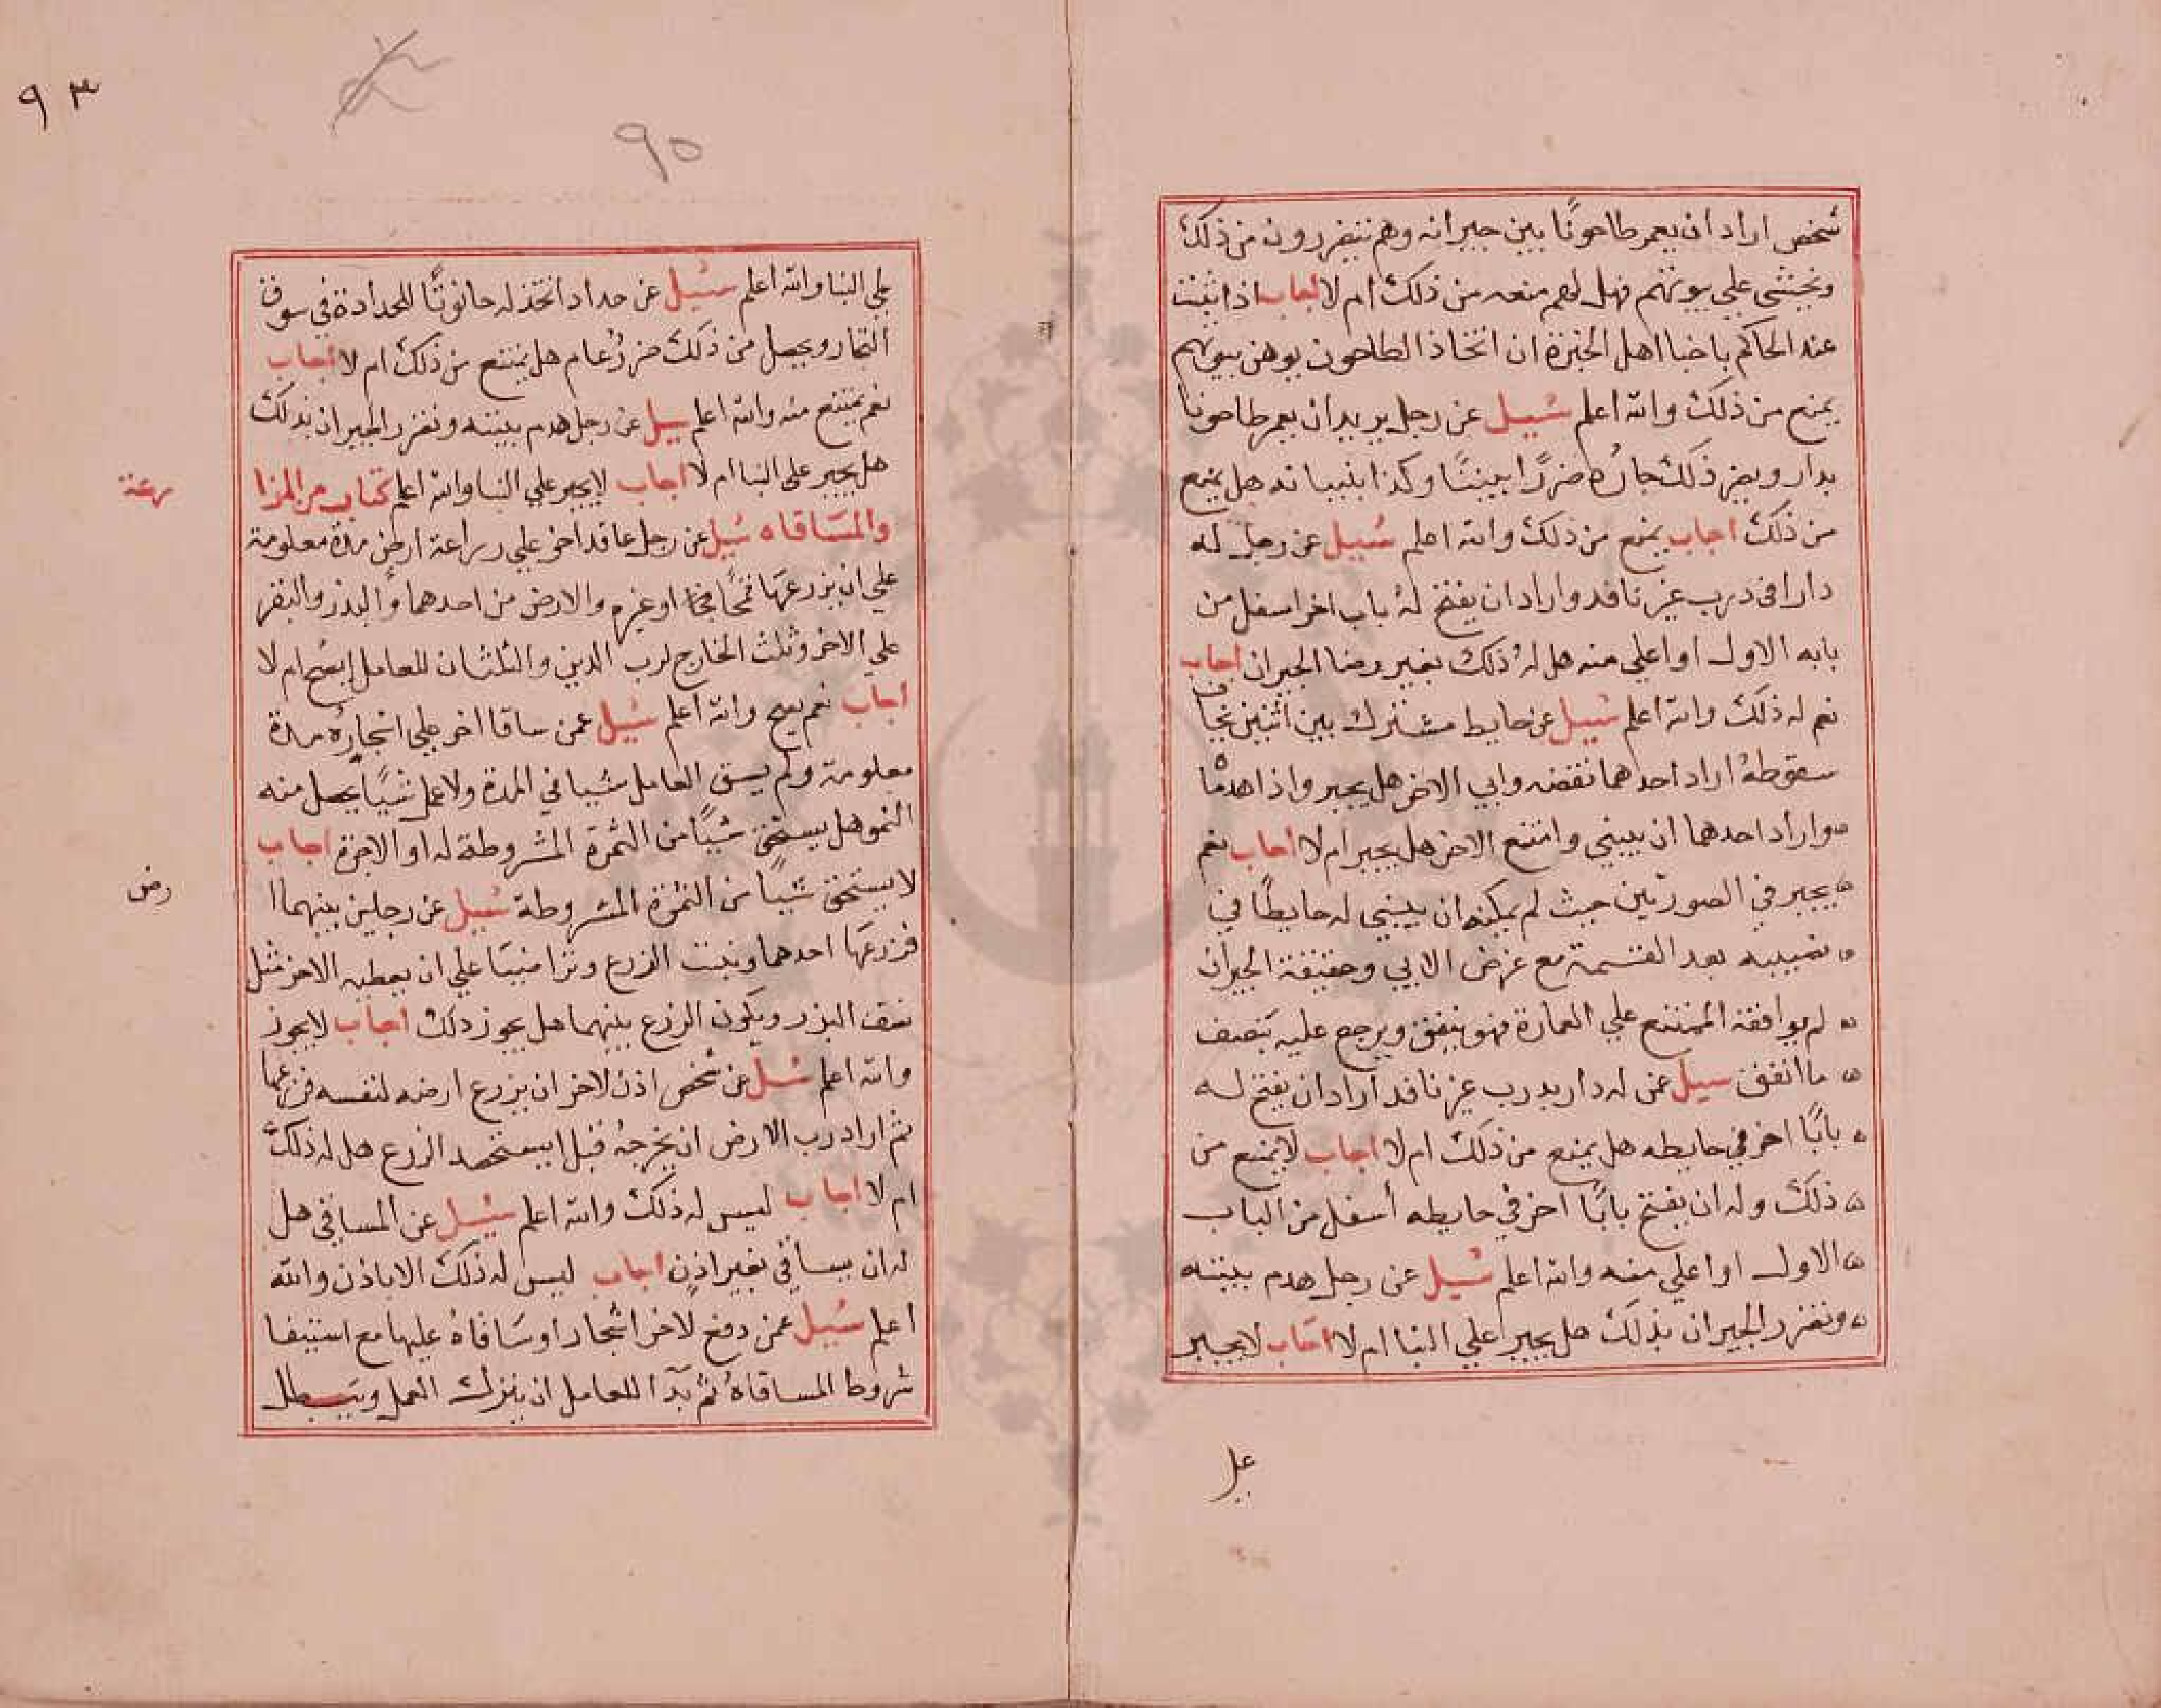 شخص اراد ان يعمر طاحونًا بين جيرانه وهم يتضررون من ذلك
ويخشى علي بيوتهم فهل لهم منعه من ذلك ام لا اجاب اذا ثبت
عند الحاكم باخبا اهل الخبرة ان اتخاذ الطاحون يوهن بيوتهم
يمنع من ذلك والله اعلم سُيل عن رجل يريد ان يعمر طاحونا
بدار ويضر ذلك جاره ضررًا بينًا وكذا ببنيانه هل يمنع
من ذلك اجاب يمنع من ذلك والله اعلم سُيل عن رجل له
دارا في درب غير نافد واراد ان يفتح لهُ باب اخر اسفل من
بابه الاول او اعلي منه هل لهُ ذلك بغير رضا الجيران اجاب
نعم له ذلك والله اعلم سُيل عن حايط مشترك بين اثنين يخاف
سقوطهُ اراد احدهما نقضه وابي الاخر هل يجبر واذا هدماه
واراد احدهما ان يبيني وامتنع الاخر هل يجبر ام لا اجاب نعم
يجبر في الصورتين حيث لم يمكنه ان يبني له حايطًا في
نصيبه بعد القسمة مع غرض الابي وحقيقة الجيران
لم يوافقه الممتنع علي العمارة فهو ينفق ويرجع عليه بنصف
ما انفق سيل عمن له دار بدرب غير نافد اراد ان يفتح له
بابًا اخر في حايطه هل يمنع من ذلك ام لا اجاب لا يمنع من
ذلك وله ان يفتح بابًا اخر في حايطه أسفل من الباب
الاول او اعلي منه والله اعلم سُيل عن رجل هدم بيته
وتضرر الجيران بذلك هل يجبر علي البنا ام لا اجاب لا يجبر
علي
٩٣
٩٥
علي البنا والله اعلم سُيل عن حداد اتخذ له حانوتًا للحدادة في سوق
التجار ويحصل من ذلك ضررُ عام هل يمتنع من ذلك ام لا اجاب
نعم يمتنع منه والله اعلم سيل عن رجل هدم بيته وتضرر الجيران بذلك
هل يجبر علي البنا ام لا اجاب لا يجبر علي البنا والله اعلم كتاب من المزا
رعة
والمسَاقاه سُيل عن رجل عاقد اخر علي زراعة ارض مدة معلومة
علي ان يزرعها قمحًا او غيره والارض من احدهما والبذر والبقر
علي الاخر وثلث الخارج لرب الدين والثلثان للعامل ايصح ام لا
اجاب نعم يصح والله اعلم سُيل عمن ساقا اخر علي اشجاره مدة
معلومة ولم يسق العامل شيا في المدة ولا عمل شيًا يحصل منه
النمو هل يستحق شيًا من الثمرة المشروطة له او الاجرة اجاب
لا يستحق شيًا من الثمرة المشروطة سُيل عن رجلين بينهما ا
رض
فزرعها احدهما ونبت الزرع وتراضيا علي ان يعطيه الاخر مثل
نصف البزر ويكون الزرع بينهما هل يجوز ذلك اجاب لا يجوز
والله اعلم سُيل عن شخص اذن لاخر ان يزرع ارضه لنفسه فزرعها
ثم اراد رب الارض ان يخرجهُ قبل ا يستحصد الزرع هل له ذلك
ام لا اجاب ليس له ذلك والله اعلم سُيل عن المساقي هل
له ان يساقي بغير اذن اجاب ليس له ذلك الا باذن والله
اعلم سُيل عمن دفع لاخر اشجار او سَاقاهُ عليها مع استيفا
شروط المساقاة ثم بدا للعامل ان يترك العمل ويبطل